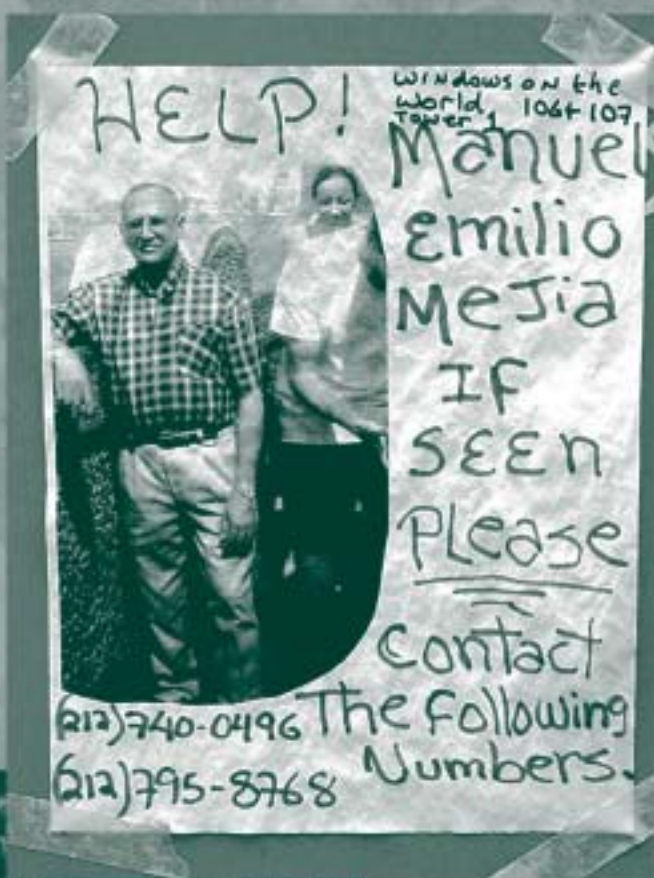 HELP!
WINdows oN the
World, 106+107
Tower 1
Manuel
Emilio
MeJia
IF
SEEn
PLease
Contact
The Following
Numbers.
(212)740-0496
(212)795-8768